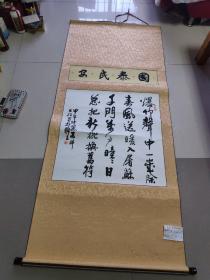 國泰民安
爆竹聲中一歲除
春風送暖入屠蘇
千門萬户曈曈日
總把新桃換舊符